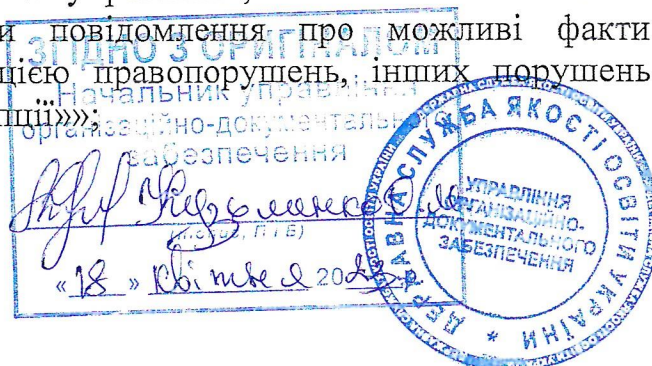 и повідомлення про можливі факти
цією правопорушень, інших порушень
пції»»;
ЗГІДНО З ОРИГІНАЛОМ
Начальник управління
організаційно-документального
забезпечення
Кузьменко О.М.
(підпис, П І Б)
«18» квітня 2023
ДЕРЖАВНА СЛУЖБА ЯКОСТІ ОСВІТИ УКРАЇНИ *
УПРАВЛІННЯ
ОРГАНІЗАЦІЙНО-
ДОКУМЕНТАЛЬНОГО
ЗАБЕЗПЕЧЕННЯ